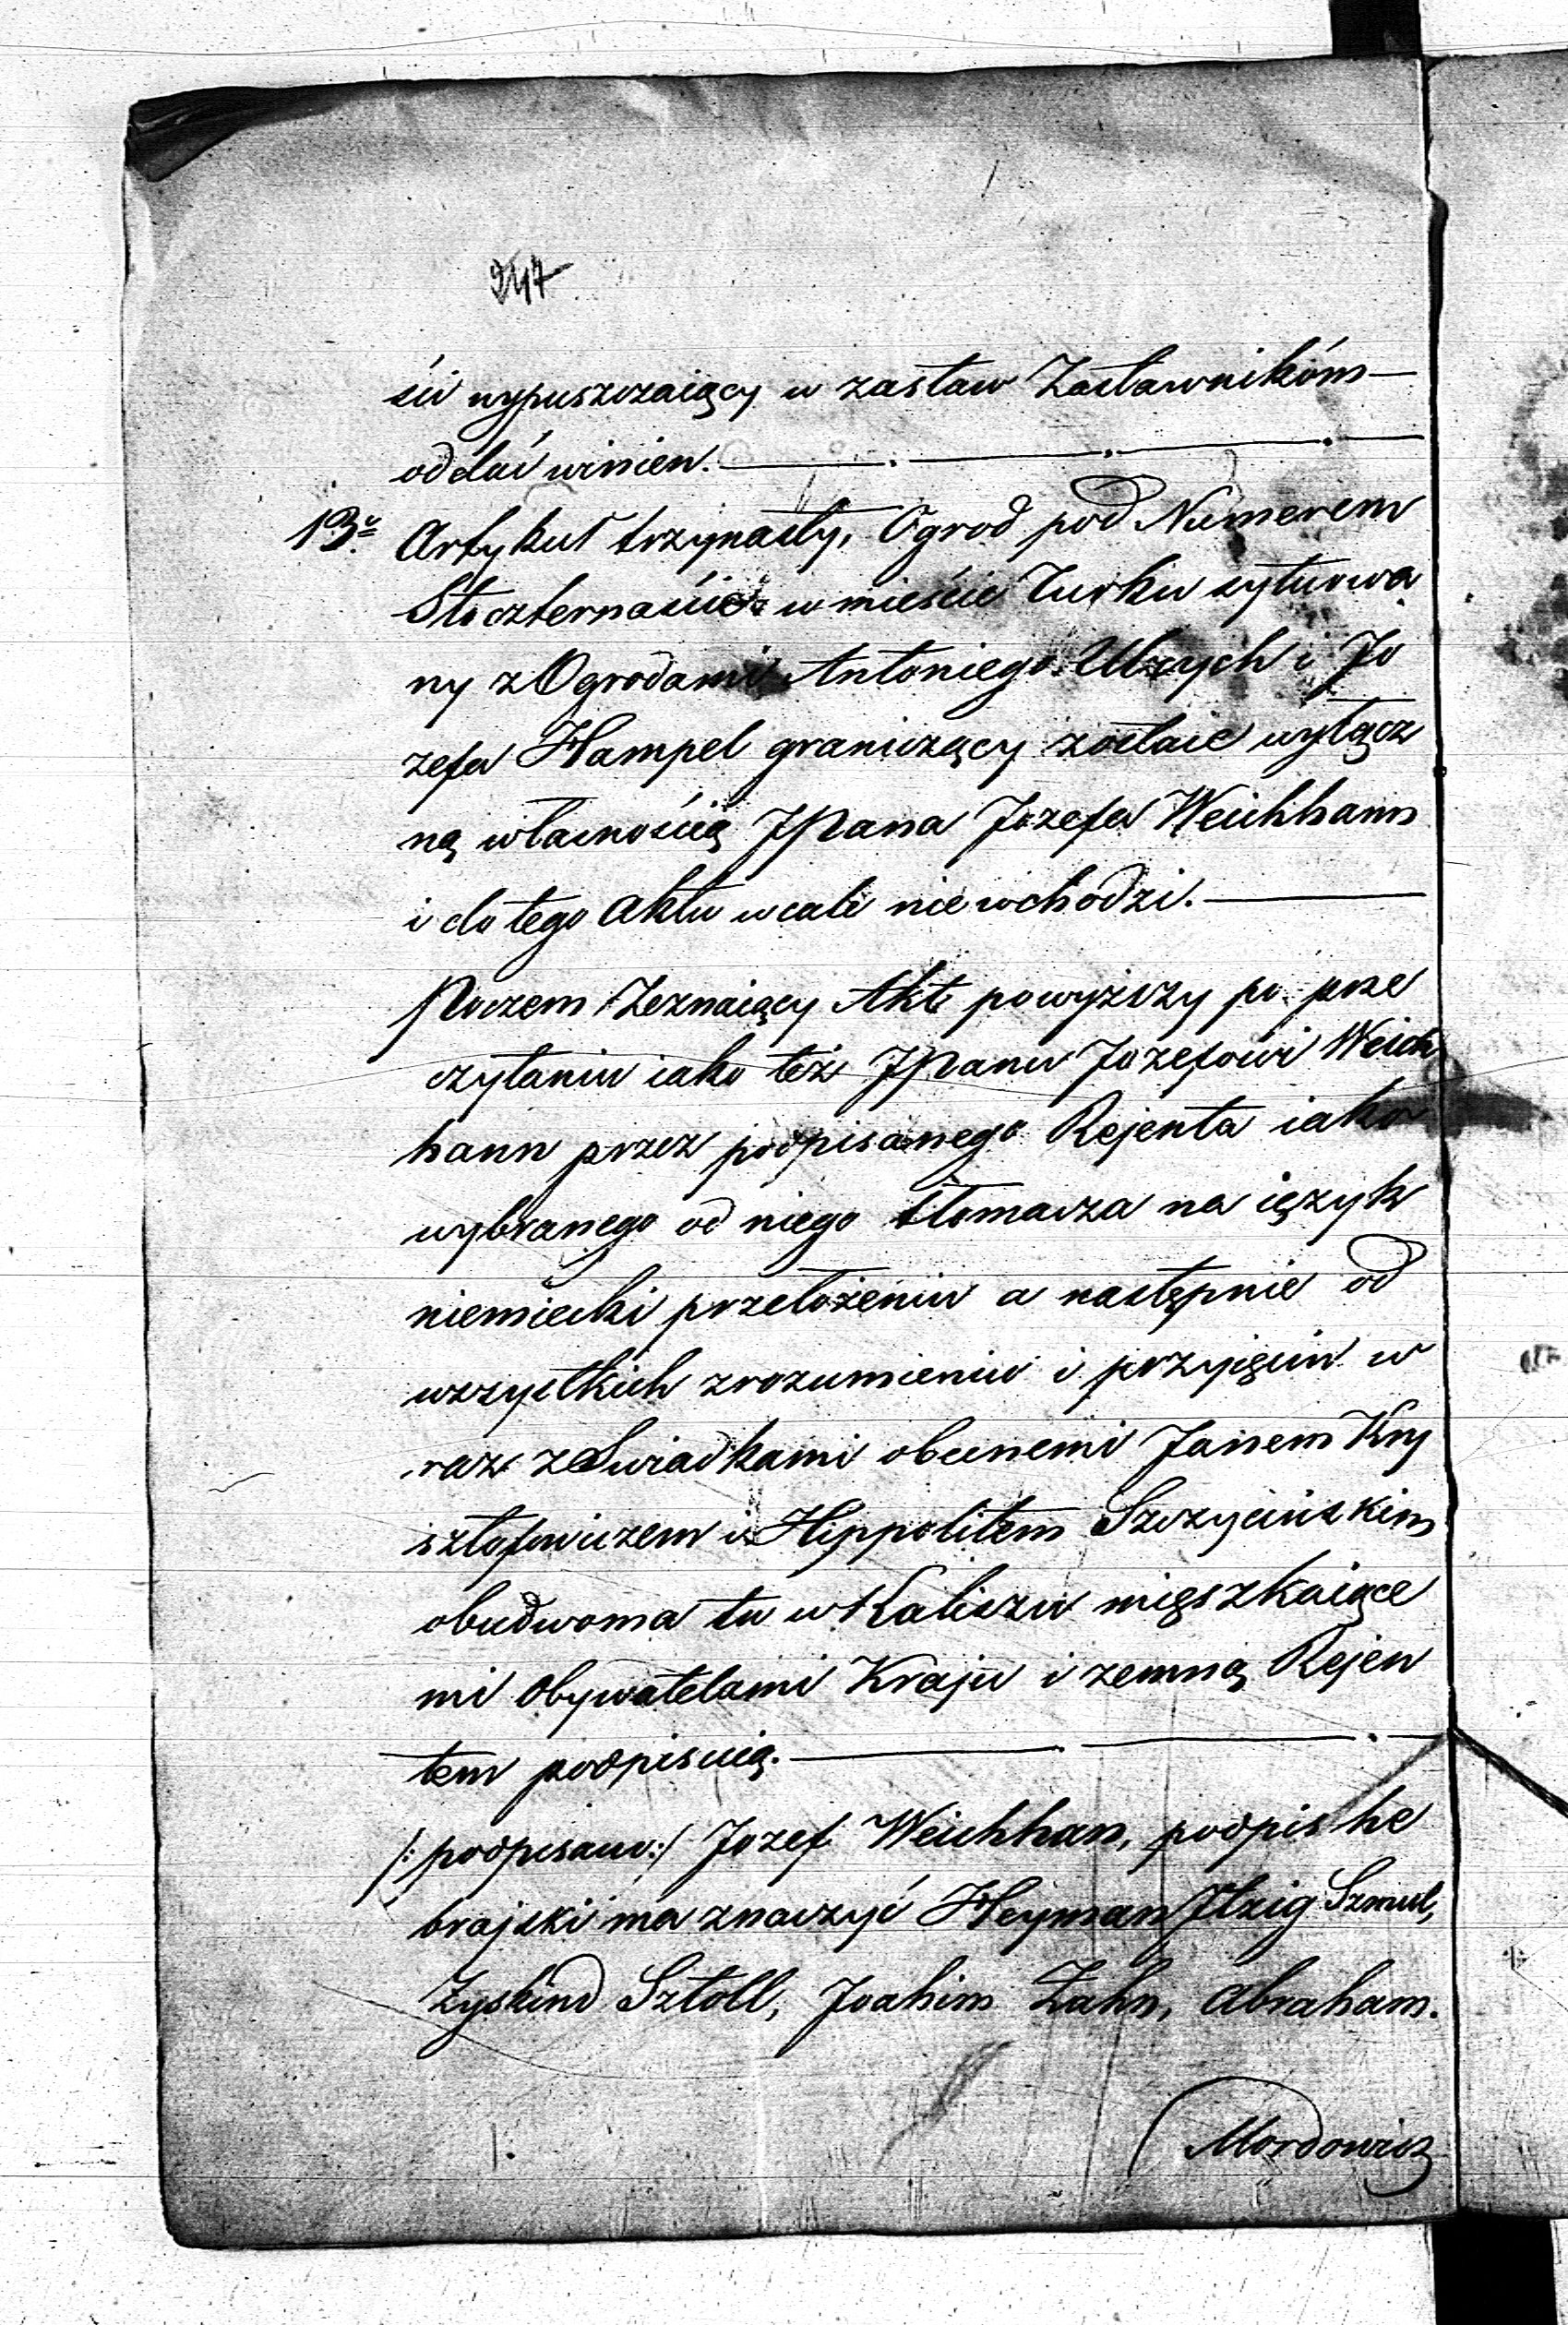 247
ści wypuszczaiący w zastaw Zastawnikóm—
oddać winien.
13º Artykuł trzynasty, Ogrod pod Numerem
Sto czternaście w mieście Turku sytuowa
ny z Ogrodami Antoniego i Jo
zefa Hampel graniczący zostaie wyłącz
ną własnością JPana Jozefa Weichhann
i do tego Aktu wcale nie wchodzi.
Poczem Zeznaiący Akt powyższy po prze
czytaniu iako też JPanu Jozefowi Weich
hann przez podpisanego Rejenta iako
wybranego od niego tłomacza na ięzyk
niemiecki przełożeniu a następnie od
wszystkich zrozumieniu i przyięciu w
raz z Swiadkami obecnemi Janem Kry
sztofowiczem i Hippolitem Szczycinskim
obudwoma tu w Kaliszu mięszkaiące
mi Obywatelami Kraju i zemną Rejen
tem podpisuią.
/:podpisano:/ Jozef Weichhan, podpis he
brajski ma znaczyć Heyman Itzig Szmul,
Zyskind Sztoll, Joahim Zahn, Abraham.
Mordowicz